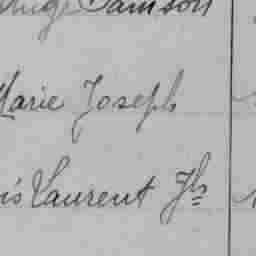 Samson
Marie Joseph
Laurent Jh